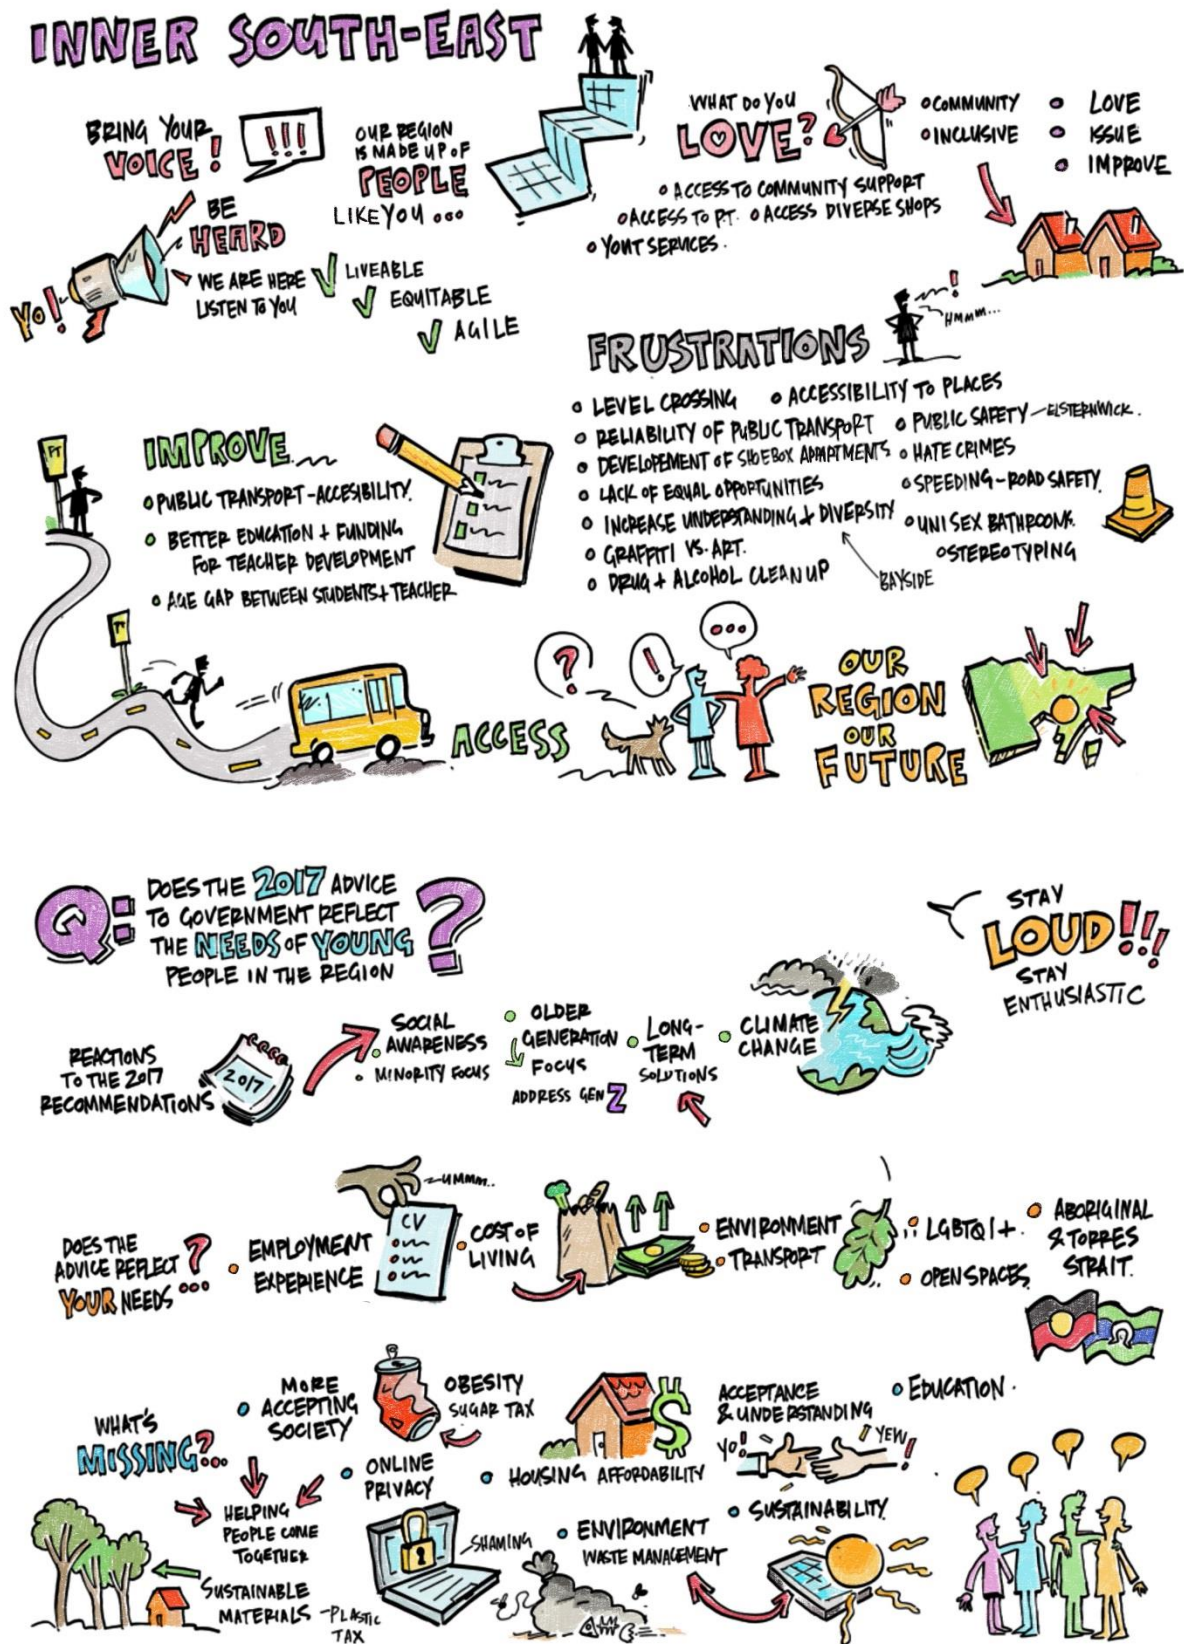 INNER SOUTH-EAST
BRING YOUR
VOICE!
!!!
OUR REGION
IS MADE UP OF
PEOPLE
LIKE YOU ...
BE
HEARD
YO!
WE ARE HERE
LISTEN TO YOU
LIVEABLE
EQUITABLE
AGILE
WHAT DO YOU
LOVE?
COMMUNITY
INCLUSIVE
LOVE
ISSUE
IMPROVE
ACCESS TO COMMUNITY SUPPORT
ACCESS TO PT. ACCESS DIVERSE SHOPS
YOUNT SERVICES.
FRUSTRATIONS
!
HMMM...
LEVEL CROSSING
ACCESSIBILITY TO PLACES
RELIABILITY OF PUBLIC TRANSPORT
PUBLIC SAFETY - ELSTERNWICK.
DEVELOPEMENT OF SHOEBOX APPARTMENTS
HATE CRIMES
LACK OF EQUAL OPPORTUNITIES
SPEEDING - ROAD SAFETY
INCREASE UNDERSTANDING + DIVERSITY
UNISEX BATHROOMS.
GRAFFITI VS. ART.
STEREOTYPING
DRUG + ALCOHOL CLEAN UP
BAYSIDE
PT
IMPROVE
PUBLIC TRANSPORT - ACCESIBILITY.
BETTER EDUCATION + FUNDING
FOR TEACHER DEVELOPMENT
AGE GAP BETWEEN STUDENTS + TEACHER
PT
ACCESS
?
!
...
OUR
REGION
OUR
FUTURE
Q:
DOES THE 2017 ADVICE
TO GOVERNMENT REFLECT
THE NEEDS OF YOUNG
PEOPLE IN THE REGION
?
STAY
LOUD!!!
STAY
ENTHUSIASTIC
REACTIONS
TO THE 2017
RECOMMENDATIONS
2017
SOCIAL
AWARENESS
MINORITY FOCUS
OLDER
GENERATION
FOCUS
ADDRESS GEN Z
LONG-
TERM
SOLUTIONS
CLIMATE
CHANGE
DOES THE
ADVICE REFLECT
YOUR NEEDS
?...
EMPLOYMENT
EXPERIENCE
UMMM..
CV
COST OF
LIVING
ENVIRONMENT
TRANSPORT
LGBTQI+
OPEN SPACES
ABORIGINAL
& TORRES
STRAIT.
WHAT'S
MISSING?..
MORE
ACCEPTING
SOCIETY
OBESITY
SUGAR TAX
$
ACCEPTANCE
& UNDERSTANDING
YO!
YEW!
EDUCATION.
HELPING
PEOPLE COME
TOGETHER
ONLINE
PRIVACY
SHAMING
HOUSING AFFORDABILITY
ENVIRONMENT
WASTE MANAGEMENT
SUSTAINABILITY
SUSTAINABLE
MATERIALS
- PLASTIC
TAX